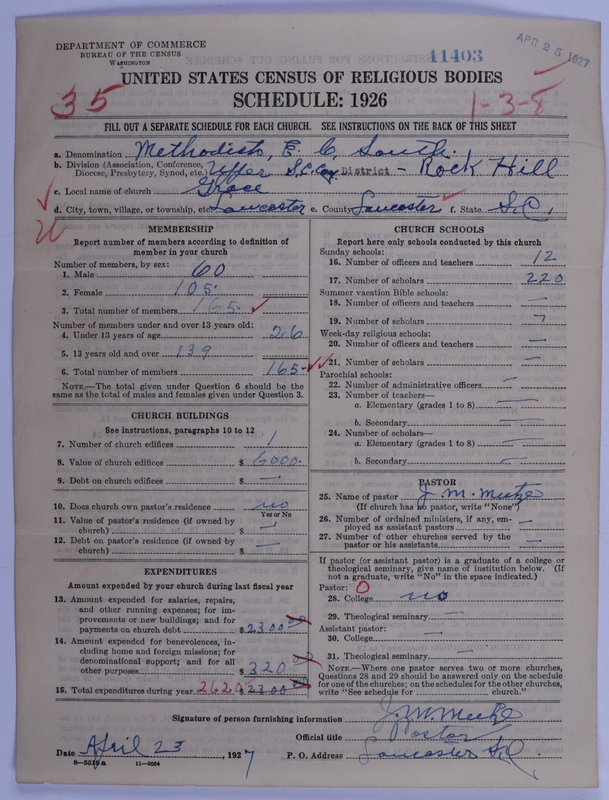 DEPARTMENT OF COMMERCE
BUREAU OF THE CENSUS
WASHINGTON
11403
APR 25 1927
UNITED STATES CENSUS OF RELIGIOUS BODIES
SCHEDULE: 1926
35
1-3-8
FILL OUT A SEPARATE SCHEDULE FOR EACH CHURCH. SEE INSTRUCTIONS ON THE BACK OF THIS SHEET
a. Denomination Methodist, E. C. South.
b. Division (Association, Conference, Diocese, Presbytery, Synod, etc.) Upper S.C. Con District - Rock Hill
c. Local name of church Grace
d. City, town, village, or township, etc. Lancaster e. County Lancaster f. State S.C.
MEMBERSHIP
Report number of members according to definition of
member in your church
Number of members, by sex:
1. Male 60
2. Female 105.
3. Total number of members 165.
Number of members under and over 13 years old:
4. Under 13 years of age 26
5. 13 years old and over 139
6. Total number of members 165
NOTE.—The total given under Question 6 should be
same as the total of males and females given under Question 3.
CHURCH BUILDINGS
See instructions, paragraphs 10 to 12
7. Number of church edifices 1
8. Value of church edifices $ 6000.
9. Debt on church edifices $ —
10. Does church own pastor's residence no
Yes or No
11. Value of pastor's residence (if owned by
church) $ —
12. Debt on pastor's residence (if owned by
church) $ —
EXPENDITURES
Amount expended by your church during last fiscal year
13. Amount expended for salaries, repairs,
and other running expenses; for im-
provements or new buildings; and for
payments on church debt $ 2300 00
14. Amount expended for benevolences, in-
cluding home and foreign missions; for
denominational support; and for all
other purposes $ 320 00
15. Total expenditures during year 2620 $ 2300 00
CHURCH SCHOOLS
Report here only schools conducted by this church
Sunday schools:
16. Number of officers and teachers 12
17. Number of scholars 220
Summer vacation Bible schools:
18. Number of officers and teachers —
19. Number of scholars —
Week-day religious schools:
20. Number of officers and teachers —
21. Number of scholars —
Parochial schools:
22. Number of administrative officers —
23. Number of teachers—
a. Elementary (grades 1 to 8) —
b. Secondary —
24. Number of scholars—
a. Elementary (grades 1 to 8) —
b. Secondary —
PASTOR
25. Name of pastor J. M. Meetze
(If church has no pastor, write "None")
26. Number of ordained ministers, if any, em-
ployed as assistant pastors —
27. Number of other churches served by the
pastor or his assistants —
If pastor (or assistant pastor) is a graduate of a college or
theological seminary, give name of institution below. (If
not a graduate, write "No" in the space indicated.)
Pastor: 0
28. College no
29. Theological seminary —
Assistant pastor:
30. College —
31. Theological seminary —
NOTE.—Where one pastor serves two or more churches,
Questions 28 and 29 should be answered only on the schedule
for one of the churches; on the schedules for the other churches,
write "See schedule for church."
Signature of person furnishing information J. M. Meetze
Official title Pastor
Date April 23, 1927 P. O. Address Lancaster S.C.
8-5518a 11-9054